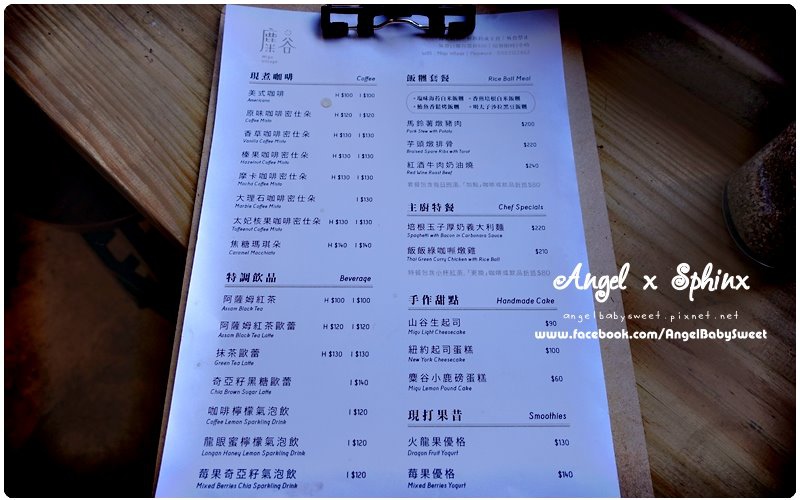 麋谷
Migu
Village
現煮咖啡 Coffee
美式咖啡 H $100 I $100
Americano
原味咖啡密仕朵 H $120 I $120
Coffee Misto
香草咖啡密仕朵 H $130 I $130
Vanilla Coffee Misto
榛果咖啡密仕朵 H $130 I $130
Hazelnut Coffee Misto
摩卡咖啡密仕朵 H $130 I $130
Mocha Coffee Misto
大理石咖啡密仕朵 I $130
Marble Coffee Misto
太妃核果咖啡密仕朵 H $130 I $130
Toffeenut Coffee Misto
焦糖瑪琪朵 H $140 I $140
Caramel Macchiato
特調飲品 Beverage
阿薩姆紅茶 H $100 I $100
Assam Black Tea
阿薩姆紅茶歐蕾 H $120 I $120
Assam Black Tea Latte
抹茶歐蕾 H $130 I $130
Green Tea Latte
奇亞籽黑糖歐蕾 I $140
Chia Brown Sugar Latte
咖啡檸檬氣泡飲 I $120
Coffee Lemon Sparkling Drink
龍眼蜜檸檬氣泡飲 I $120
Longan Honey Lemon Sparkling Drink
莓果奇亞籽氣泡飲 I $120
Mixed Berries Chia Sparkling Drink
飯糰套餐 Rice Ball Meal
・塩味海苔白米飯糰 ・香煎培根白米飯糰
・鮪魚香鬆烤飯糰 ・明太子沙拉黑豆飯糰
馬鈴薯燉豬肉 $200
Pork Stew with Potato
芋頭燉排骨 $220
Braised Spare Ribs with Tarot
紅酒牛肉奶油燒 $240
Red Wine Roast Beef
主廚特餐 Chef Specials
培根玉子厚奶義大利麵 $220
Spaghetti with Bacon in Carbonara Sauce
飯飯綠咖喱燉雞 $210
Thai Green Curry Chicken with Rice Ball
手作甜點 Handmade Cake
山谷生起司 $90
Migu Light Cheesecake
紐約起司蛋糕 $100
New York Cheesecake
麋谷小鹿磅蛋糕 $60
Migu Lemon Pound Cake
現打果昔 Smoothies
火龍果優格 $130
Dragon Fruit Yogurt
莓果優格 $140
Mixed Berries Yogurt
Angel x Sphinx
angelbabysweet.pixnet.net
www.facebook.com/AngelBabySweet